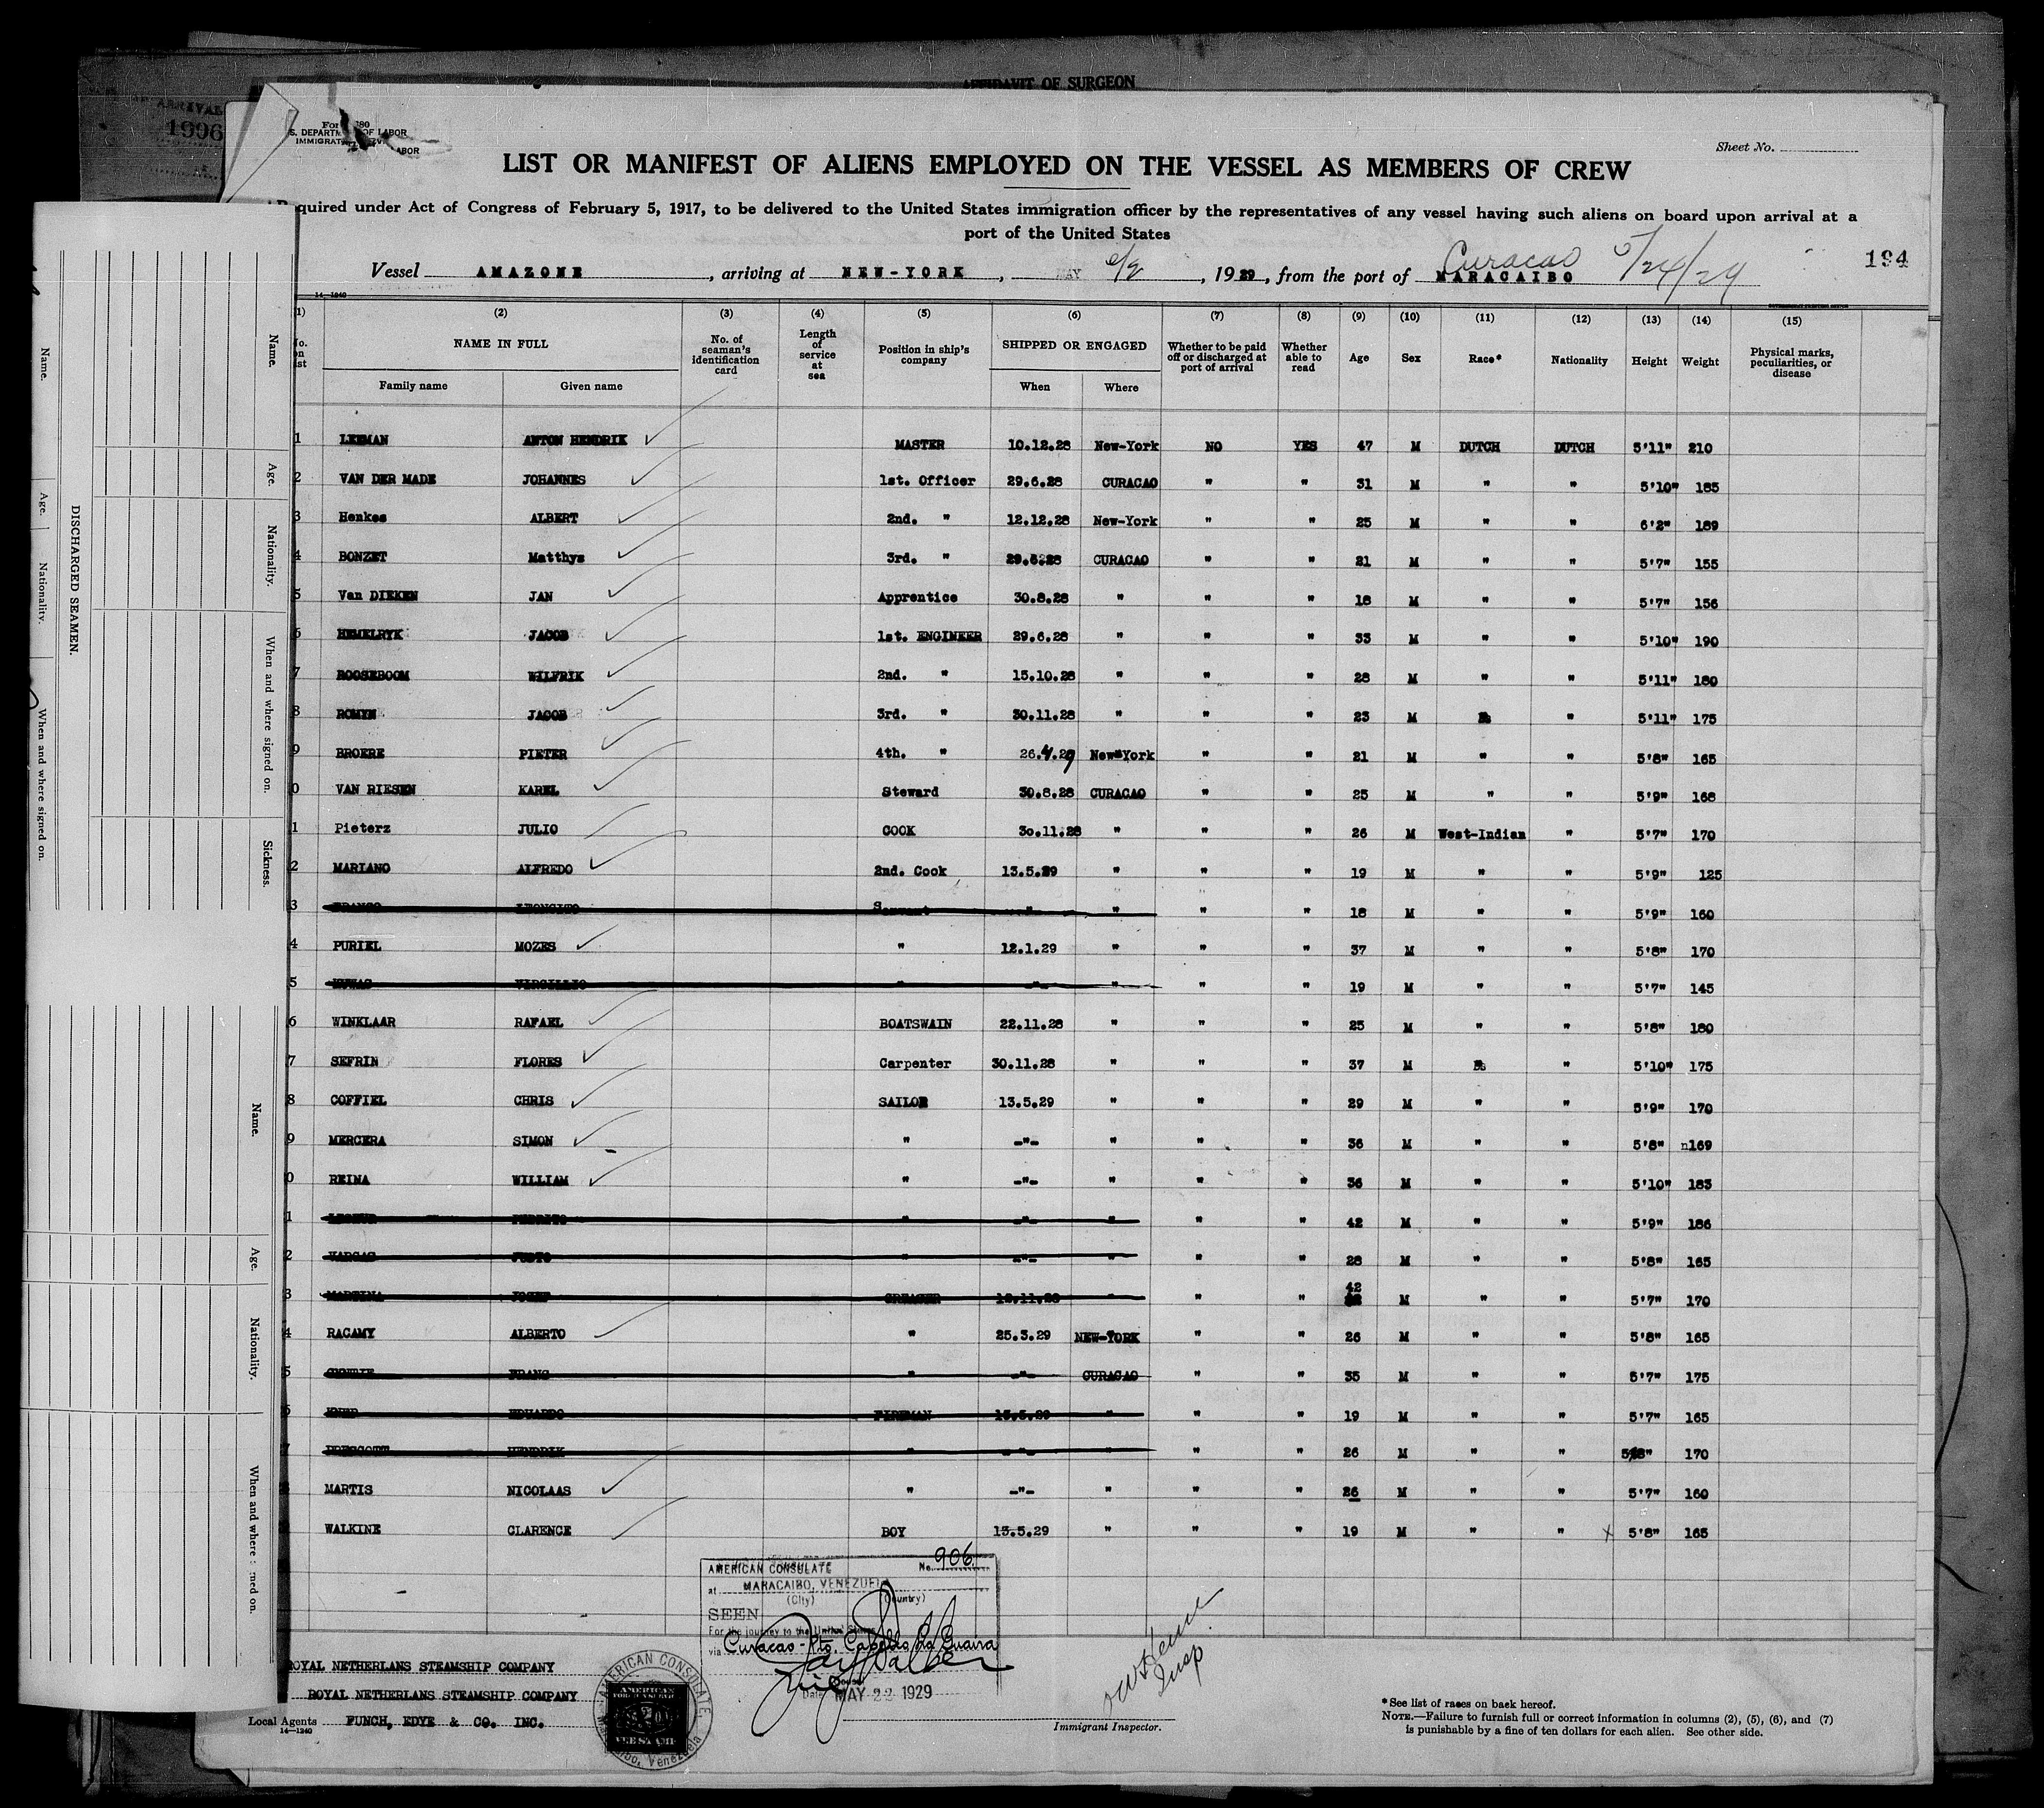 AFFIDAVIT OF SURGEON
ARRIVAL
1996
S. DEPARTM OF LABOR
LABOR
Sheet No.
LIST OR MANIFEST OF ALIENS EMPLOYED ON THE VESSEL AS MEMBERS OF CREW
Required under Act of Congress of February 5, 1917, to be delivered to the United States immigration officer by the representatives of any vessel having such aliens on board upon arrival at a
port of the United States
Vessel AMAZONE, arriving at NEW-YORK, MAY 6/2, 1929, from the port of Curacao MARACAIBO 5/24/29
194
14-1240
(1) (2) (3) (4) (5) (6) (7) (8) (9) (10) (11) (12) (13) (14) (15)
No. on list NAME IN FULL Family name Given name No. of seaman's identification card Length of service at sea Position in ship's company SHIPPED OR ENGAGED When Where Whether to be paid off or discharged at port of arrival Whether able to read Age Sex Race* Nationality Height Weight Physical marks, peculiarities, or disease
1 LEEMAN ANTON HENDRIK MASTER 10.12.28 New-York NO YES 47 M DUTCH DUTCH 5'11" 210
2 VAN DER MADE JOHANNES 1st. Officer 29.6.28 CURACAO " " 31 M " " 5'10" 185
3 Henkes ALBERT 2nd. " 12.12.28 New-York " " 25 M " " 6'2" 189
4 BONZET Matthys 3rd. " 29.6.28 CURACAO " " 21 M " " 5'7" 155
5 Van DIEKEN JAN Apprentice 30.8.28 " " " 18 M " " 5'7" 156
6 HEMELRYK JACOB 1st. ENGINEER 29.6.28 " " " 33 M " " 5'10" 190
7 ROOSEBOOM WILFRIK 2nd. " 15.10.28 " " " 28 M " " 5'11" 180
8 ROMYN JACOB 3rd. " 30.11.28 " " " 23 M " 5'11" 175
9 BROERE PIETER 4th. " 26.4.29 New-York " " 21 M " " 5'8" 165
0 VAN RIESEN KAREL Steward 30.8.28 CURACAO " " 25 M " " 5'9" 168
1 Pieterz JULIO COOK 30.11.28 " " " 26 M West-Indian " 5'7" 170
2 MARIANO ALFREDO 2nd. Cook 13.5.29 " " " 19 M " " 5'9" 125
3 FRANSO LEONCITO Servant " " " " 18 M " " 5'9" 160
4 PURIEL MOZES " 12.1.29 " " " 37 M " " 5'8" 170
5 VIRGILLIO " -"- " " " 19 M " " 5'7" 145
6 WINKLAAR RAFAEL BOATSWAIN 22.11.28 " " " 25 M " " 5'8" 180
7 SEFRIN FLORES Carpenter 30.11.28 " " " 37 M " 5'10" 175
8 COFFIEL CHRIS SAILOR 13.5.29 " " " 29 M " " 5'9" 170
9 MERCERA SIMON " -"- " " " 36 M " " 5'8" n169
0 REINA WILLIAM " -"- " " " 36 M " " 5'10" 183
1 PEDRITO " -"- " " " 42 M " " 5'9" 186
2 JUSTO " -"- " " " 28 M " " 5'8" 165
3 MARTINA JOZEF GREASER " " " 42 M " " 5'7" 170
4 RACAMY ALBERTO " 25.3.29 NEW-YORK " " 26 M " " 5'8" 165
5 FRANS " -"- CURACAO " " 35 M " " 5'7" 175
6 EDUARDO FIREMAN 13.5.29 " " " 19 M " " 5'7" 165
7 PRESCOTT HENDRIK " -"- " " " 26 M " " 5'8" 170
MARTIS NICOLAAS " -"- " " " 26 M " " 5'7" 160
WALKINE CLARENCE BOY 13.5.29 " " " 19 M " " x 5'8" 165
AMERICAN CONSULATE No. 906
at MARACAIBO, VENEZUELA
(City) (Country)
SEEN
For the journey to the United States
via Curacao - Pto. Cabello La Guaira
Date MAY 22 1929
ROYAL NETHERLANS STEAMSHIP COMPANY
ROYAL NETHERLANS STEAMSHIP COMPANY
Local Agents FUNCH, EDYE & CO. INC.
14-1240
AMERICAN CONSULATE
Maracaibo, Venezuela
AMERICAN
FEE STAMP
Insp
Immigrant Inspector.
*See list of races on back hereof.
NOTE.—Failure to furnish full or correct information in columns (2), (5), (6), and (7)
is punishable by a fine of ten dollars for each alien. See other side.
DISCHARGED SEAMEN.
Name. Age. Nationality. When and where signed on.
Name. Age. Nationality. When and where signed on. Sickness.
Name. Age. Nationality. When and where